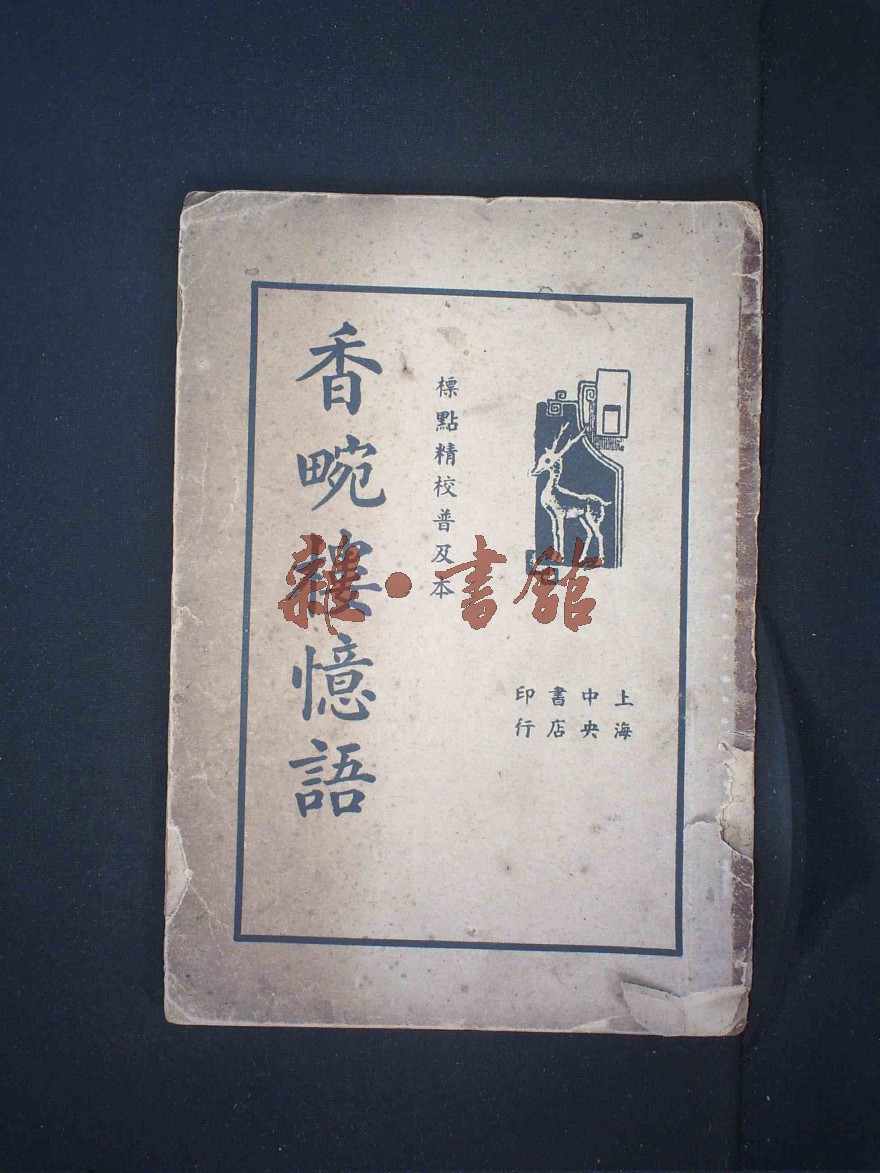 上海
中央
書店
印行
標點精校普及本
香畹樓憶語
雜•書館